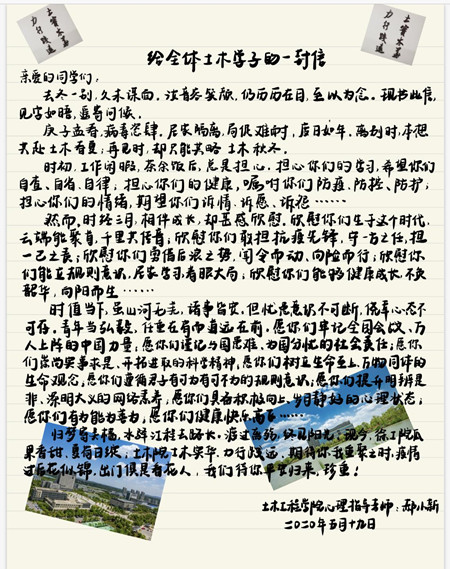 土實木茂
力行致遠
土實木茂
力行致遠
给全体土木学子的一封信
亲爱的同学们:
去冬一别,久未谋面。读音容笑颜,仍历历在目,至以为念。现书此信,
见字如晤,遥寄问候。
庚子孟春,病毒肆。居家隔离,局促难耐,度日如年。离别时,本想
共赴土木春夏;再见时,却只能笑晤土木秋冬。
时初,工作闲暇,茶余饭后,总是担心。担心你们的学习,希望你们
自查、自省、自律;担心你们的健康,嘱咐你们防疫、防控、防护;
担心你们的情绪,期望你们诉情、诉愿、诉怨……
然而,时经三月,相伴成长,却甚感欣慰。欣慰你们生于这个时代,
云端能聚首,千里共传音;欣慰你们敢担抗疫先锋,守一方之任,担
一己之责;欣慰你们勇值后浪之势,闻令而动、向险而行;欣慰你
们能立规则意识,居家学习着眼大局;欣慰你们能够健康成长,不负
韶华,向阳而生……
时值当下,虽山河无恙,诸事皆安。但忧患意识不可断,侥幸心态不
可存。青年当弘毅,任重在肩而道远在前。愿你们牢记全国会议、万
人上阵的中国力量;愿你们谨记与国患难、为国分忧的社会责任;愿你
们崇尚实事求是、开拓进取的科学精神;愿你们树立生命至上、万物同体的
生命观念;愿你们要循君子有可为有可不为的规则意识;愿你们提升明辨是
非、深明大义的网络素养;愿你们具备积极向上、岁月静好的心理状态;
愿你们有为能为善为;愿你们健康快乐高飞……
归梦寄吴樯,水驿江程去路长。渡过、终见阳光;现今,徐工院瓜
果香甜,夏荷日现;土木院土木荣华,力行致远。期待你我重聚之时,疫情
过后花似锦,出门俱是看花人。我们待你平安归来,珍重!
土木工程学院心理指导老师:郝小新
二〇二〇年五月十九日